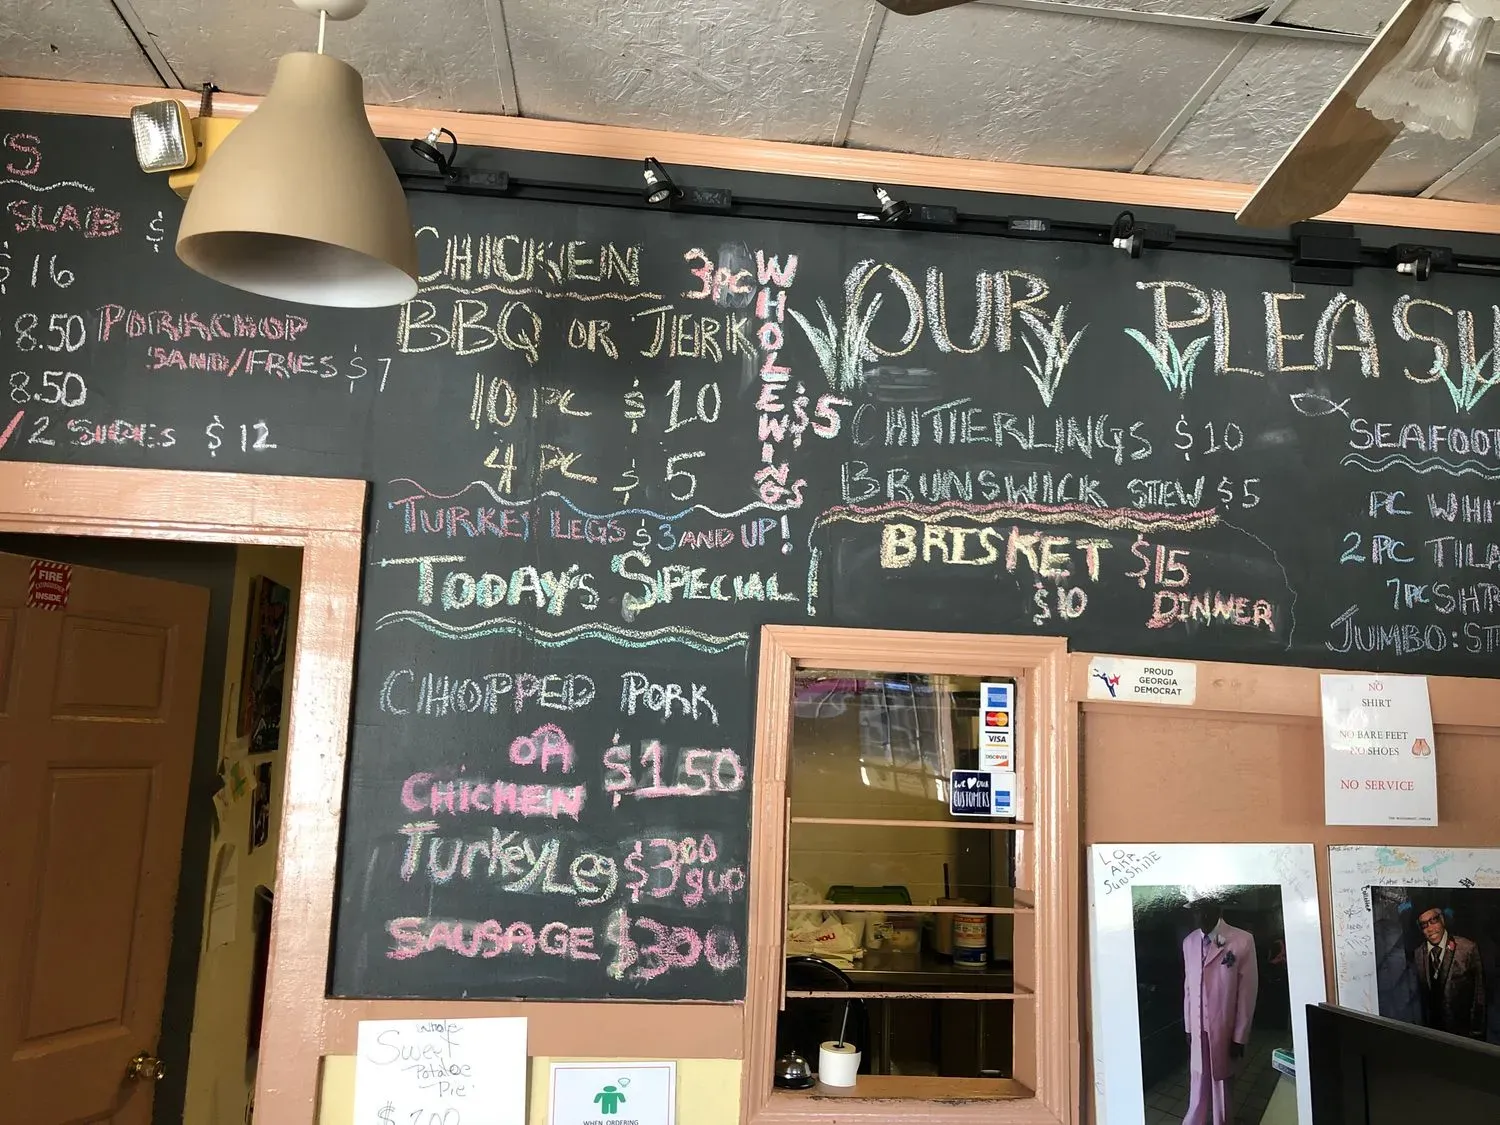 S
SLAB $
$16
8.50 PORKCHOP
SAND/FRIES $7
8.50
/2 SIDES $12
CHICKEN
BBQ OR JERK
10 PC $10
4 PC $5
3PC WHOLE WINGS $5
TURKEY LEGS $3 AND UP!
TODAY'S SPECIAL
CHOPPED PORK
OR
CHICKEN $1.50
TURKEY LEG $3.00 & UP
SAUSAGE $3.00
OUR PLEASU
CHITTERLINGS $10
BRUNSWICK STEW $5
BRISKET $15
$10 DINNER
SEAFOOD
PC WHIT
2 PC TILA
7PC SHR
JUMBO: ST
FIRE
EXTINGUISHER
INSIDE
PROUD
GEORGIA
DEMOCRAT
NO
SHIRT
NO BARE FEET
NO SHOES
NO SERVICE
MasterCard
VISA
DISCOVER
WE OUR
CUSTOMERS
Whole
Sweet
Potatoe
Pie
WHEN ORDERING
LO
SUNSHINE
YOU